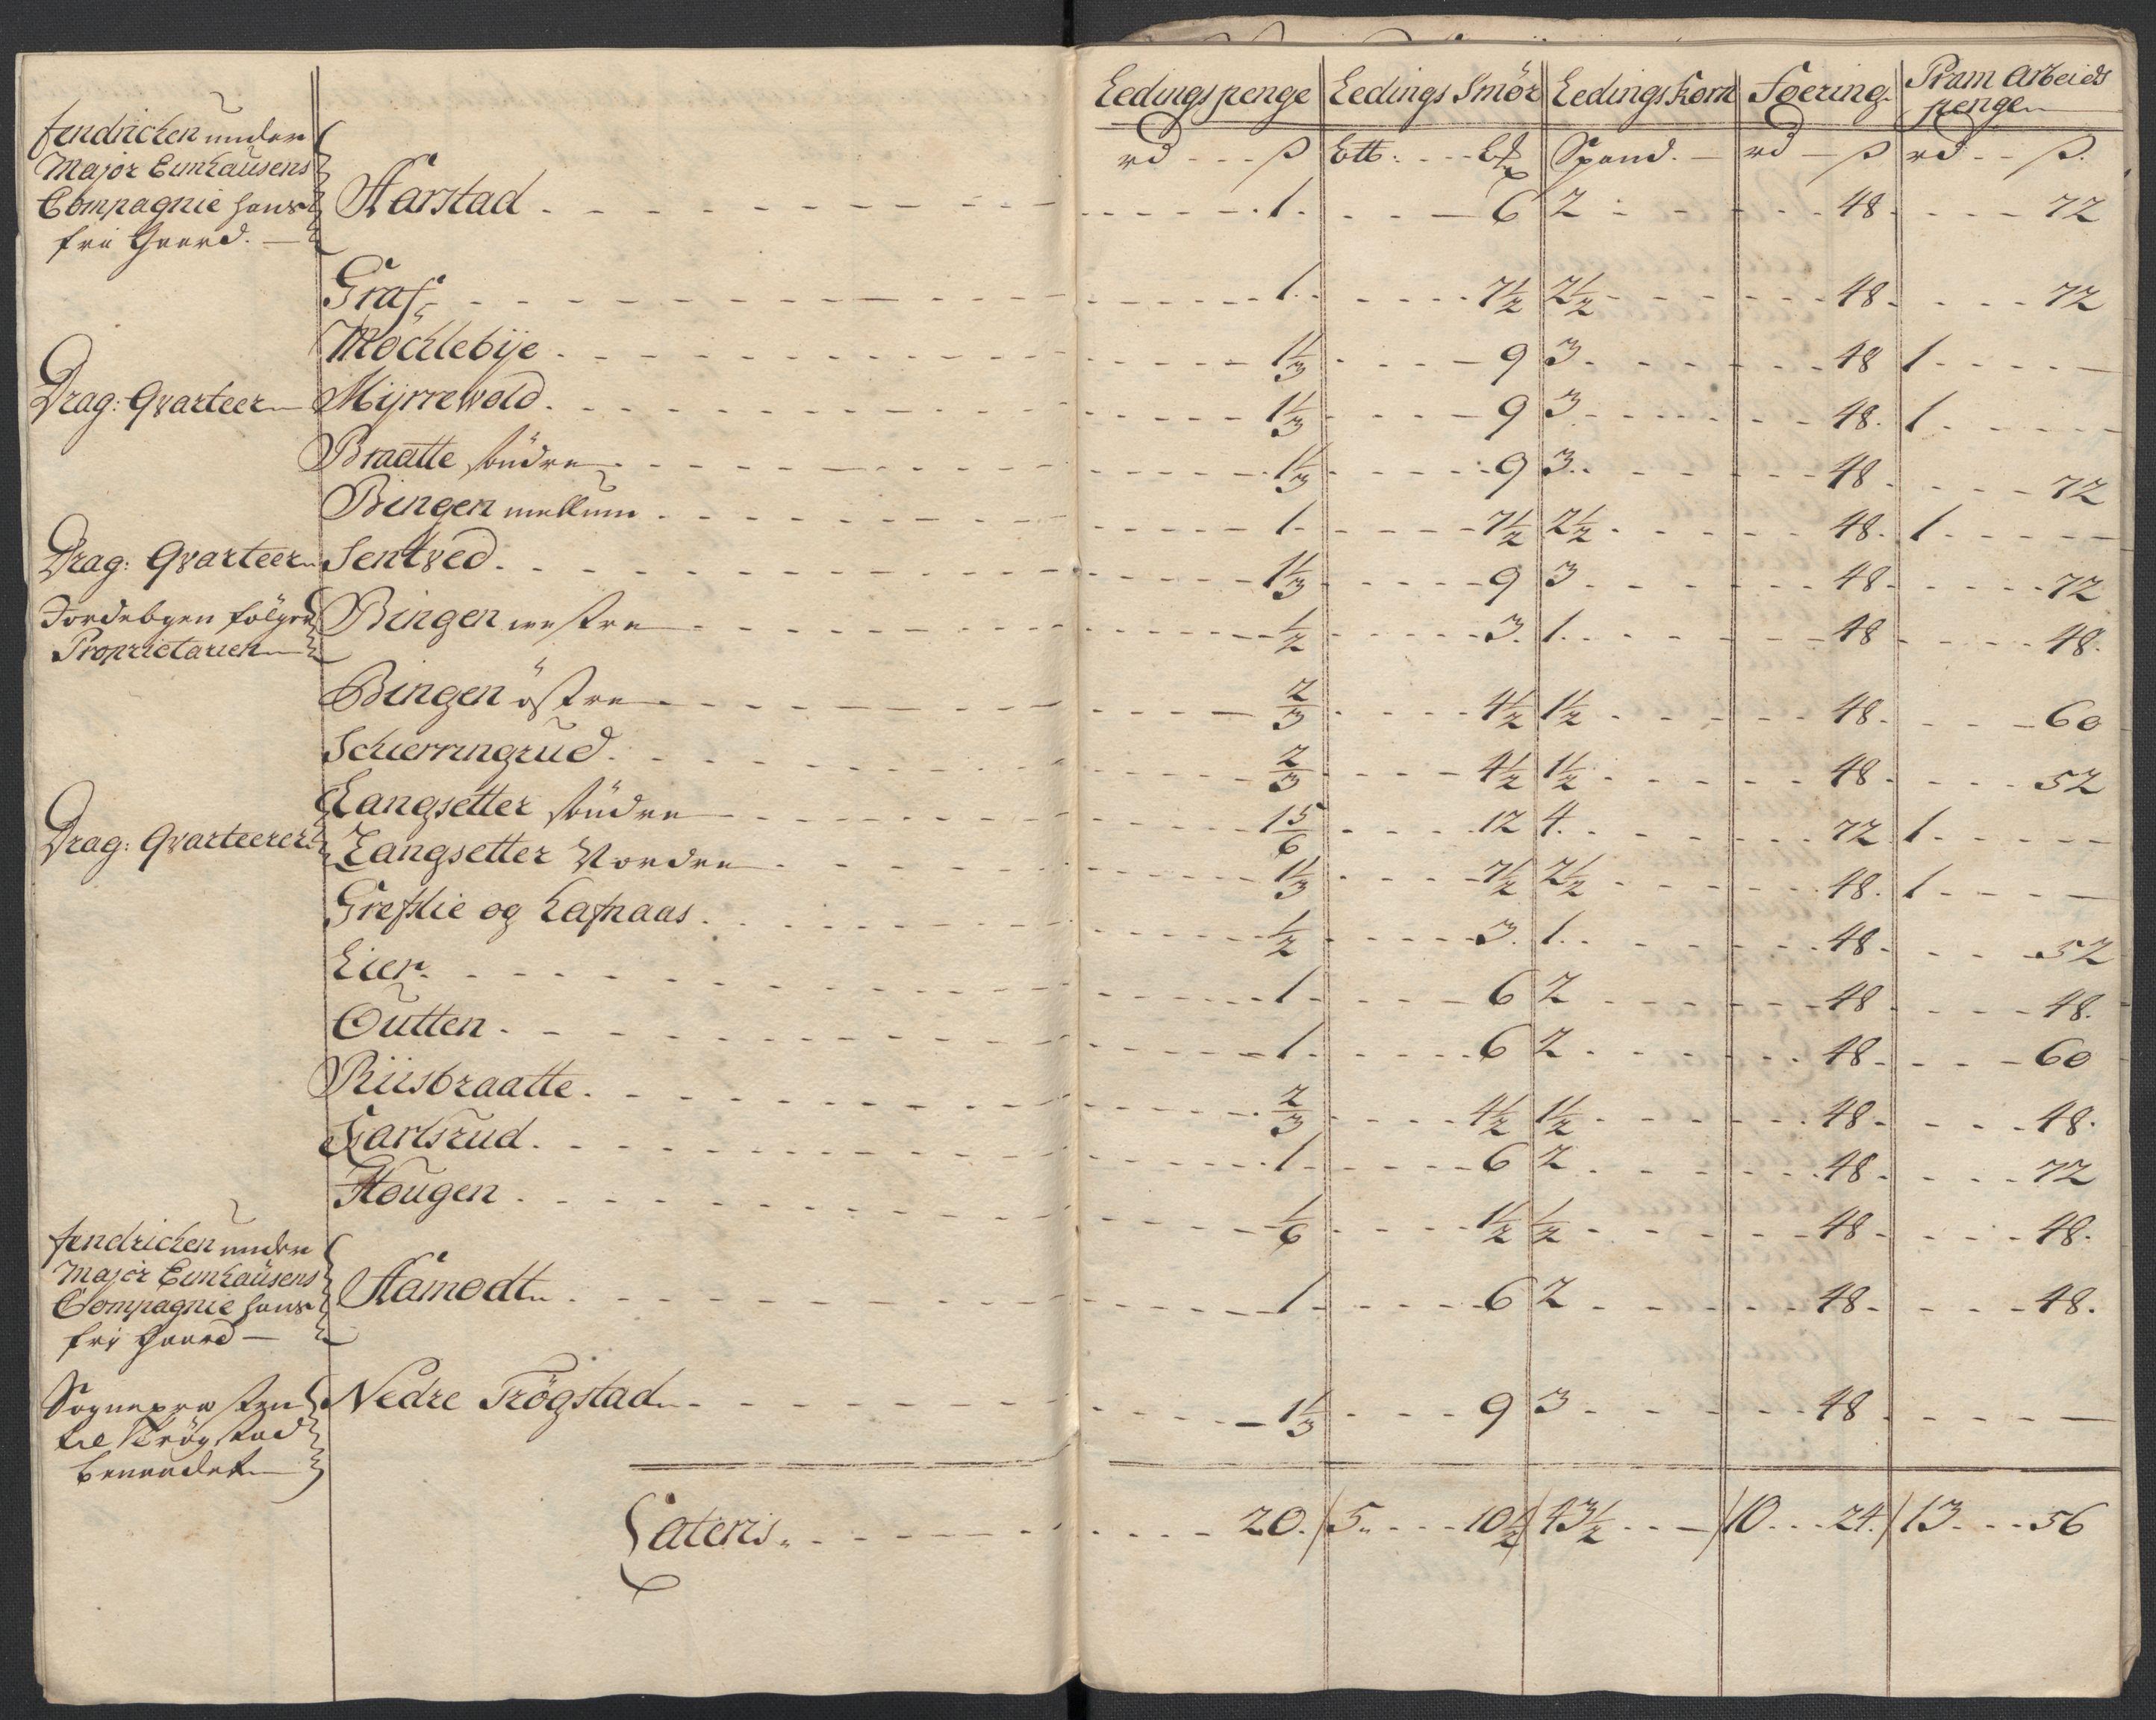 Ledingspenge | Ledings Smör | Ledingskorn | Foering | Pram Arbeids penge
rd - - ß | btt: - - L℔ | Spand. | rd - ß | rd - - ß.
fendrichen under
Major Eunhausens
Compagnie hans
frii Gaard. — Harstad - - - 1. | 6 | 2 | 48 | 72
Graf - - - 1. | 7½ | 2½ | 48 | 72
Möchlebÿe - - - 1⅓ | 9 | 3 | 48 | 1 - - -
Drag: Qvarteer Mÿrrewold - - - 1⅓ | 9 | 3 | 48. | 1 - - -
Braatte söndre - - - 1⅓ | 9 | 3 | 48 | 72
Bingen mellum - - - 1 | 7½ | 2½ | 48. | 1 - - -
Drag: Qvarteer Sentved - - - 1⅓ | 9 | 3 | 48 | 72
Jordebogen fölger
Proprietarien Bingen westre - - - ½ | 3. | 1. | 48 | 48.
Bingen östre - - - ⅔ | 4½ | 1½ | 48 | 60
Schierringrud - - - ⅔ | 4½ | 1½ | 48 | 52
Langsetter söndre - - - 1⅚ | 12 | 4. | 72 | 1 - - -
Drag: Qvarteerer Langsetter Nordre - - - 1⅓ | 7½ | 2½ | 48. | 1 - - -
Grefslie og Lafnaas - - - ½ | 3. | 1. | 48 | 52
Lier - - - 1 | 6 | 2 | 48 | 48.
Outten - - - 1 | 6 | 2 | 48 | 60
Riisbraatte - - - ⅔ | 4½ | 1½ | 48 | 48.
Karlsrud - - - 1 | 6 | 2 | 48 | 72
Hougen - - - ⅙ | 1½ | ½ | 48 | 48.
fendrichen under
Major Eunhausens
Compagnie hans
frÿ Gaard — Hamodt - - - 1 | 6 | 2 | 48 | 48.
Sognepresten
til Trögstad
beneadet Nedre Trögstad - - - 1⅓ | 9 | 3 | 48 | —
Lateris - - - 20. | 5 - - 10½ | 43½ | 10 - - 24. | 13 - - 56